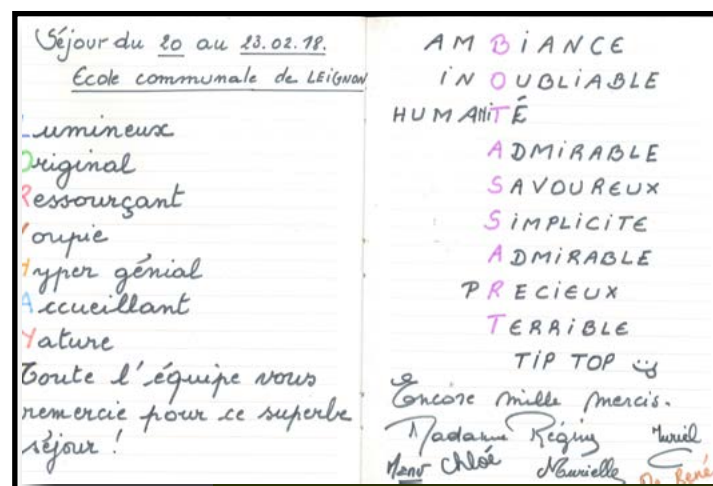 Séjour du 20 au 23.02.18.
École communale de LEIGNON
Lumineux
Original
Ressourçant
Youpie
Hyper génial
Accueillant
Nature
Toute l'équipe vous
remercie pour ce superbe
séjour !
AMBIANCE
INOUBLIABLE
HUMANITÉ
ADMIRABLE
SAVOUREUX
SIMPLICITE
ADMIRABLE
PRECIEUX
TERRIBLE
TIP TOP
Encore mille mercis.
Madame Régine Muriel
Chloé Maurielle Mr René